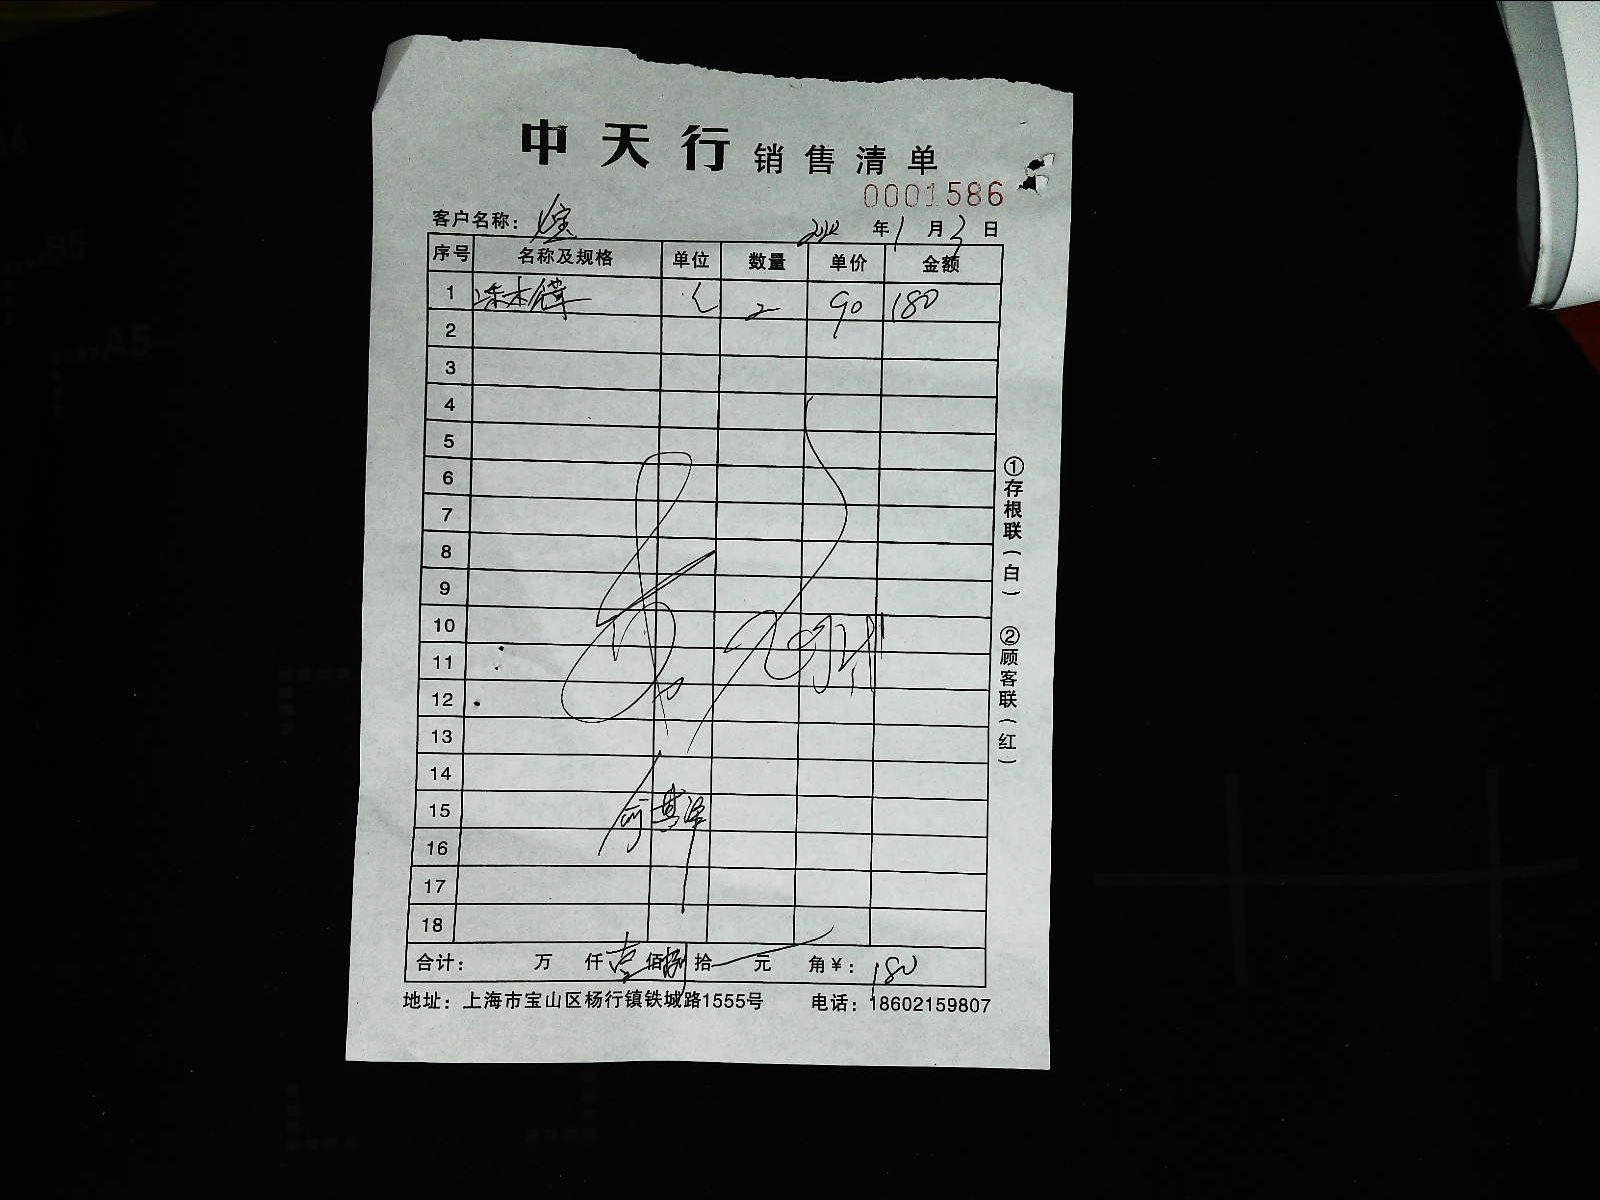 中天行销售清单
0001586
客户名称： 年1月3日
序号 名称及规格 单位 数量 单价 金额
1 2 90 180
2
3
4
5
6
7
8
9
10
11
12
13
14
15
16
17
18
合计： 万 仟壹佰捌拾 元 角￥：180
地址：上海市宝山区杨行镇铁城路1555号 电话：18602159807
①存根联（白） ②顾客联（红）